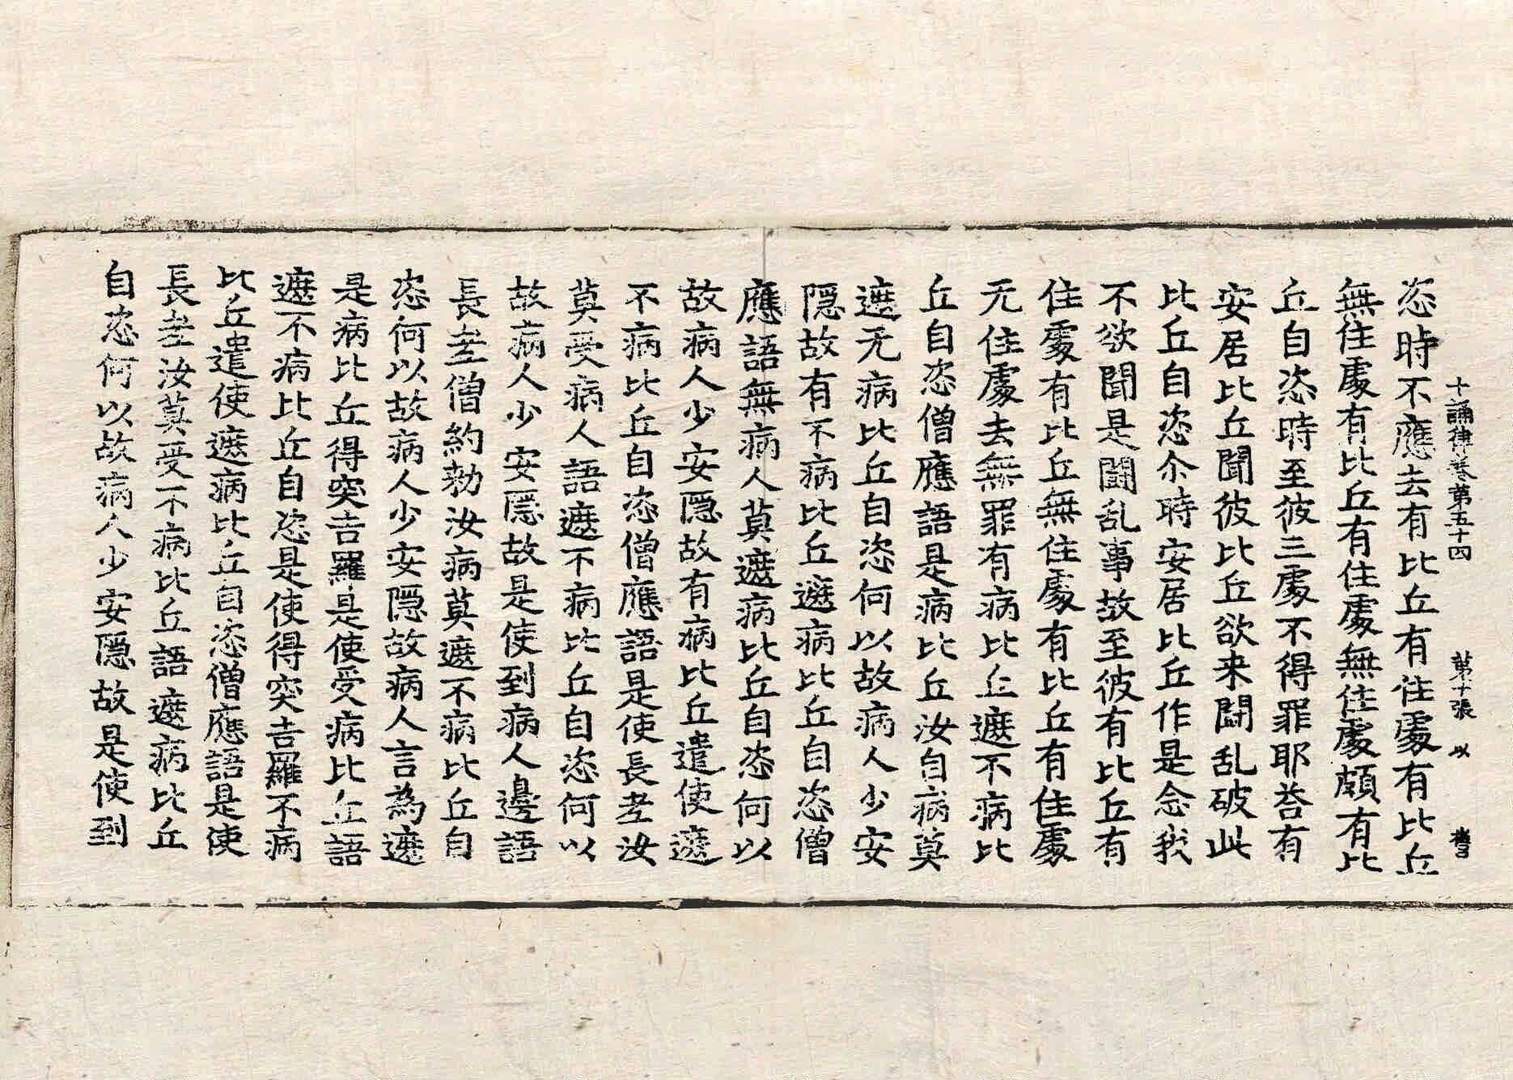 十誦律卷第五十四 第十張 以
恣時不應去有比丘有住處有比丘
無住處有比丘有住處無住處頗有比
丘自恣時至彼三處不得罪耶荅有
安居比丘聞彼比丘欲来鬪乱破此
比丘自恣尒時安居比丘作是念我
不欲聞是鬪乱事故至彼有比丘有
住處有比丘無住處有比丘有住處
无住處去無罪有病比丘遮不病比
丘自恣僧應語是病比丘汝自病莫
遮无病比丘自恣何以故病人少安
隱故有不病比丘遮病比丘自恣僧
應語無病人莫遮病比丘自恣何以
故病人少安隱故有病比丘遣使遮
不病比丘自恣僧應語是使長老汝
莫受病人語遮不病比丘自恣何以
故病人少安隱故是使到病人邊語
長老僧約勑汝病莫遮不病比丘自
恣何以故病人少安隱故病人言為遮
是病比丘得突吉羅是使受病比丘語
遮不病比丘自恣是使得突吉羅不病
比丘遣使遮病比丘自恣僧應語是使
長老汝莫受不病比丘語遮病比丘
自恣何以故病人少安隱故是使到